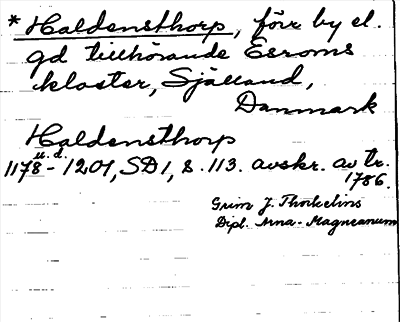 * Haldensthorp, förr by el.
gd tillhörande Esroms
kloster, Själland,
Danmark
Haldensthorp
u. d.
1178-1201, SD 1, s. 113. avskr. av tr.
1786.
Grim J. Thorkelins
Dipl. Arna-Magneanum